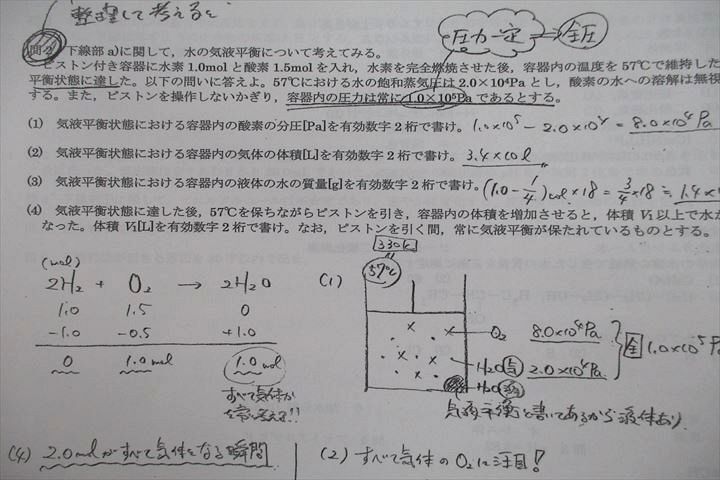 整理して考えると
圧力一定 ⇒ 全圧
問2 下線部 a)に関して，水の気液平衡について考えてみる。
ピストン付き容器に水素 1.0mol と酸素 1.5mol を入れ，水素を完全燃焼させた後，容器内の温度を 57℃で維持した
平衡状態に達した。以下の問いに答えよ。57℃における水の飽和蒸気圧は 2.0×10⁴Pa とし，酸素の水への溶解は無視
する。また，ピストンを操作しないかぎり，容器内の圧力は常に 1.0×10⁵Pa であるとする。
(1) 気液平衡状態における容器内の酸素の分圧[Pa]を有効数字 2 桁で書け。 1.0×10⁵ － 2.0×10⁴ ＝ 8.0×10⁴Pa
(2) 気液平衡状態における容器内の気体の体積[L]を有効数字 2 桁で書け。 3.4×10L
(3) 気液平衡状態における容器内の液体の水の質量[g]を有効数字 2 桁で書け。 (1.0－1/4)mol×18＝3/4×18≒1.4×
(4) 気液平衡状態に達した後，57℃を保ちながらピストンを引き，容器内の体積を増加させると，体積 V₁以上で水が
なった。体積 V₁[L]を有効数字 2 桁で書け。なお，ピストンを引く間，常に気液平衡が保たれているものとする。
330K
57℃
(mol)
2H₂ + O₂ → 2H₂O
1.0 1.5 0
-1.0 -0.5 +1.0
0 1.0mol 1.0mol
すべて気体か
(1)
O₂ 8.0×10⁴Pa
H₂O気 2.0×10⁴Pa
全 1.0×10⁵Pa
H₂O液
気液平衡と書いてあるから液体あり
(4) 2.0molがすべて気体となる瞬間
(2) すべて気体のO₂に注目！